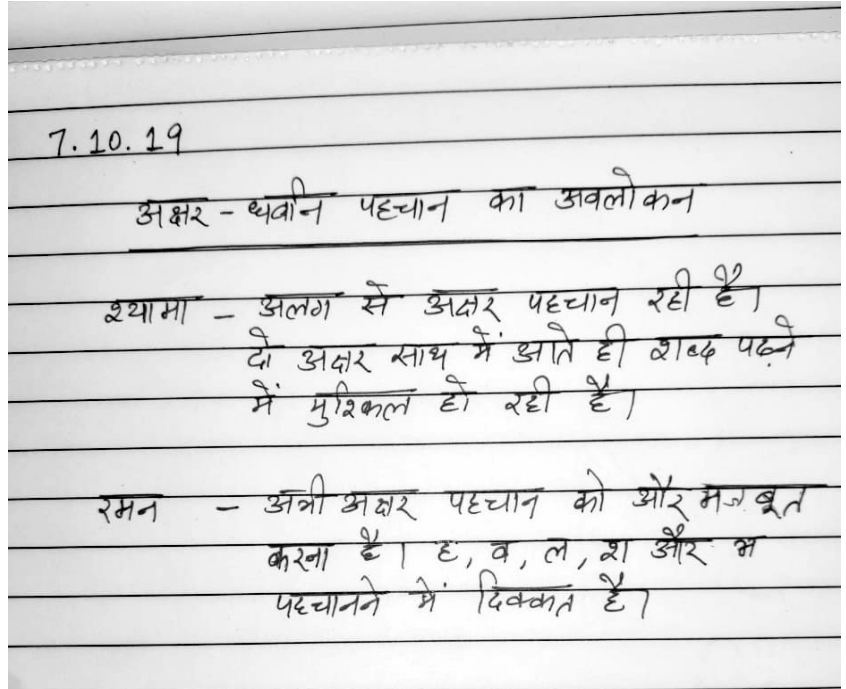 7.10.19
अक्षर - ध्वनि पहचान का अवलोकन
श्यामा - अलग से अक्षर पहचान रही है।
दो अक्षर साथ में आते ही शब्द पढ़ने
में मुश्किल हो रही है।
रमन - अभी अक्षर पहचान को और मजबूत
करना है। ह, व, ल, श और भ
पहचानने में दिक्कत है।